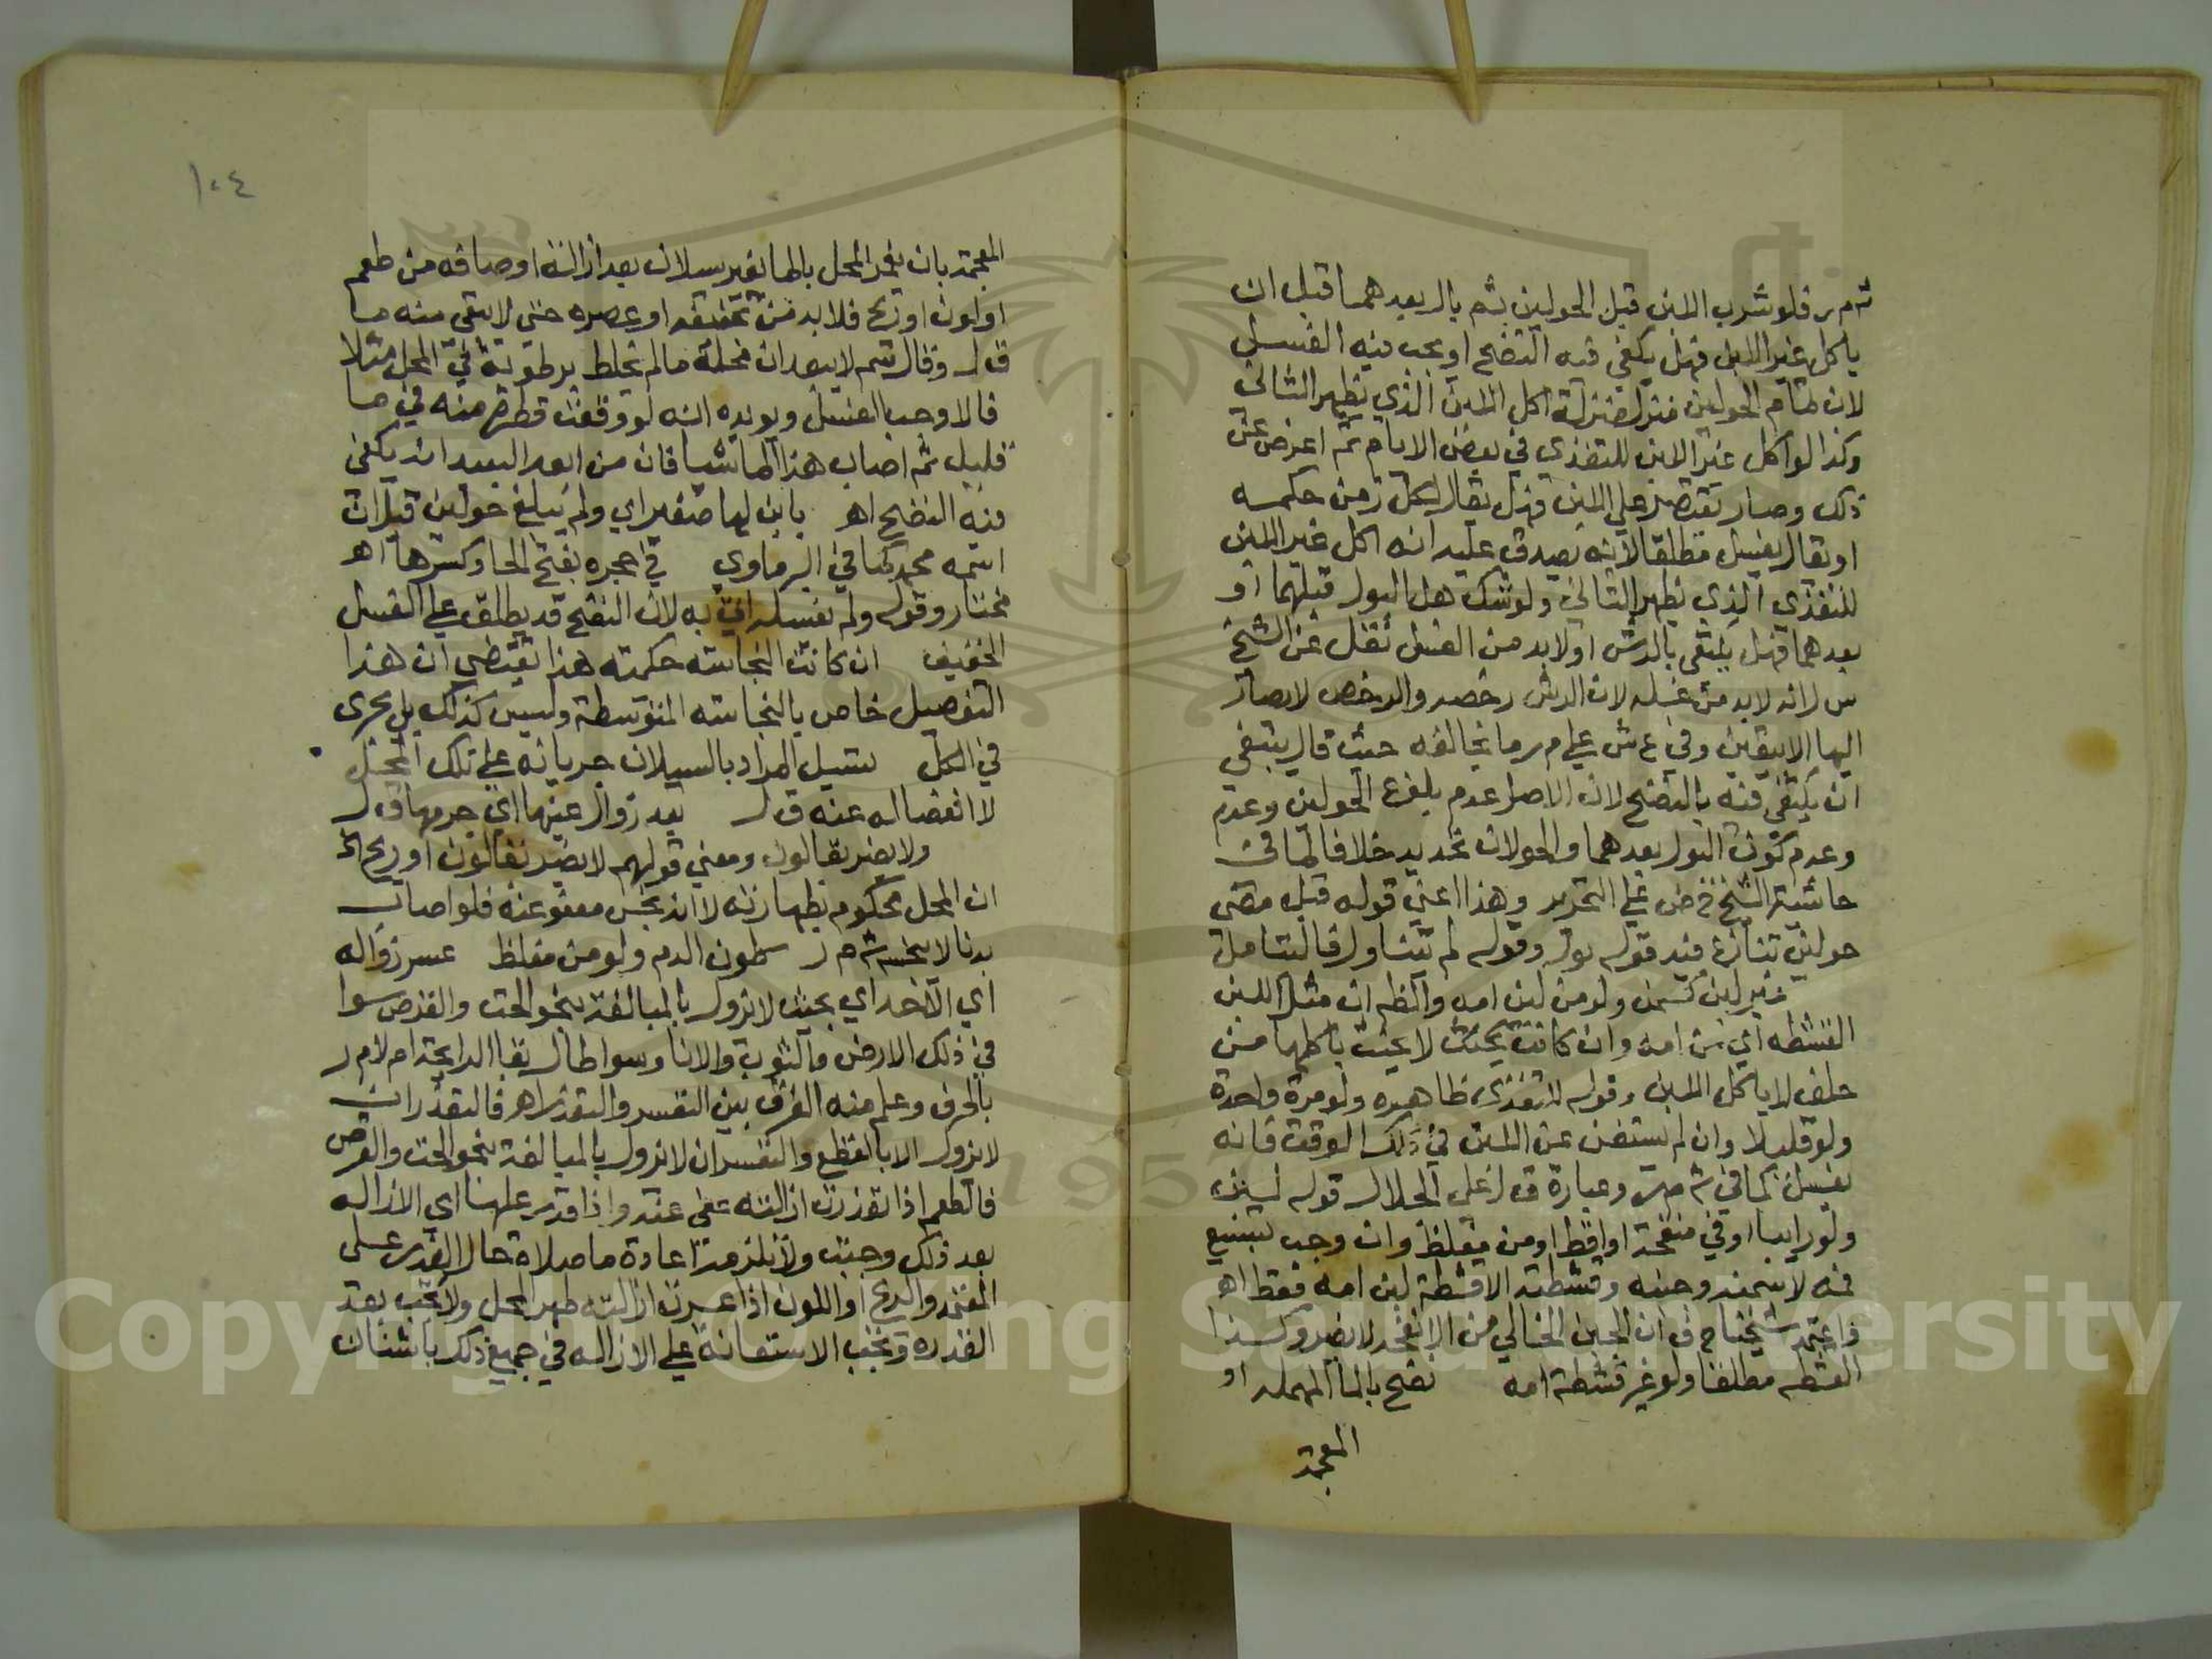 ش م ر فلو شرب اللبن قبل الحولين ثم بال بعدهما قبل ان
ياكل غير اللبن فهل يكفي فيه النضح او يجب فيه الغسل
لان تمام الحولين منزل منزلة اكل اللبن الذي يظهر الثاني
وكذا لو اكل غير اللبن للتغذي في بعض الايام ثم اعرض عن
ذلك وصار يقتصر علي اللبن فهل يقال لكل زمن حكمه
او يقال يغسل مطلقا لانه يصدق عليه انه اكل غير اللبن
للتغذي الذي يظهر الثاني ولو شك هل البول قبلهما او
بعدهما فهل يكتفي بالرش او لابد من الغسل نقل عن الشيخ
س ل انه لابد من غسله لان الرش رخصه والرخص لا يصار
اليها الا بيقين وفي ع ش علي م ر ما يخالفه حيث قال ينبغي
ان يكتفي فيه بالنضح لان الاصل عدم بلوغ الحولين وعدم
وعدم كون البول بعدهما والحولان تحديد خلافا لما في
حاشية الشيخ خ ض علي التحرير وهذا اعني قوله قبل مضي
حولين تنازع فيه قوله بول وقوله لم يتناول فالتتامل
غير لبن كسمن ولو من لبن امه والظ ان مثل اللبن
القشطه اي من امه وان كانت بحيث لا يحنث باكلها من
حلف لا ياكل اللبن وقوله لا تغذي ظاهره ولو مرة واحدة
ولو قليلا وان لم يستغن عن اللبن في ذلك الوقت فانه
يغسل كما في ش م ر وعبارة ق ل علي الجلال قوله لبن
ولو رايبا او في منفحة او اقط او من مغلظ وان وجب تسبيع
فمه لا سمنه وجبنه وقشطته الا قشطة لبن امه فقط اهـ
واعتمد شيخنا ح ف ان الجبن الخالي من الانفحه لا يضر وكذا
القشطه مطلقا ولو غير قشطة امه نضح بالحا المهمله او
المعجمة
١٠٤
المعجمة بان يغمر المحل بالما بغير سيلان بعد ازالة اوصافه من طعم
او لون او ريح فلا بد من تجفيفه او عصره حتي لا يبقي منه ما
ق ل وقال سم لا يبعد ان محله ما لم يختلط برطوبة في المحل مثلا
فالا وجب الغسل ويويده انه لو وقعت قطرة منه في ما
قليل ثم اصاب هذا الما شيا فان من ابعد البعيد ان يكفي
فيه النضح اهـ بابن لها صغير اي ولم يبلغ حولين قيل ان
اسمه محمد كما في البرماوي في حجره بفتح الحا وكسرها اهـ
مختار وقوله ولم يغسله اتي به لان النضح قد يطلق علي الغسل
الخفيف ان كانت النجاسة حكمته هذا يقتضي ان هذا
التفصيل خاص بالنجاسه المتوسطة وليس كذلك بل يجري
في الكل بسيل المراد بالسيلان جريانه علي تلك المحل
لا انفصاله عنه ق ل بعد زوال عينها اي جرمها ق ل
ولا يضر بقا لون ومعني قولهم لا يضر بقا لون او ريح
ان المحل محكوم بطهارته لا انه نجس معفو عنه فلو اصاب
بدنا لا ينجسه ش م ر كلون الدم ولو من مغلظ عسر زواله
اي الاخر اي بحيث لا يزول بالمبالغة بنحو الحت والقرص سوا
في ذلك الارض والثوب والانا وسوا طال بقا الرايحة ام لا م ر
بالحرف وعلم منه الفرق بين التعسر والتعذر اهـ فالتعذر ان
لا يزول الا بالقطع والتعسر ان لا يزول بالمبالغة بنحو الحت والقرص
فالطعم اذا تعذرت ازالته عفي عنه واذا قدر عليها اي الازاله
بعد ذلك وجبت ولا تلزمه اعادة ما صلاه حال العذر علي
المعتمد والريح او اللون اذا عسرت ازالته طهر المحل ولا تجب بعد
القدره وتجب الاستعانة علي الازاله في جميع ذلك باشنان
Copyright © King Saud University
1957